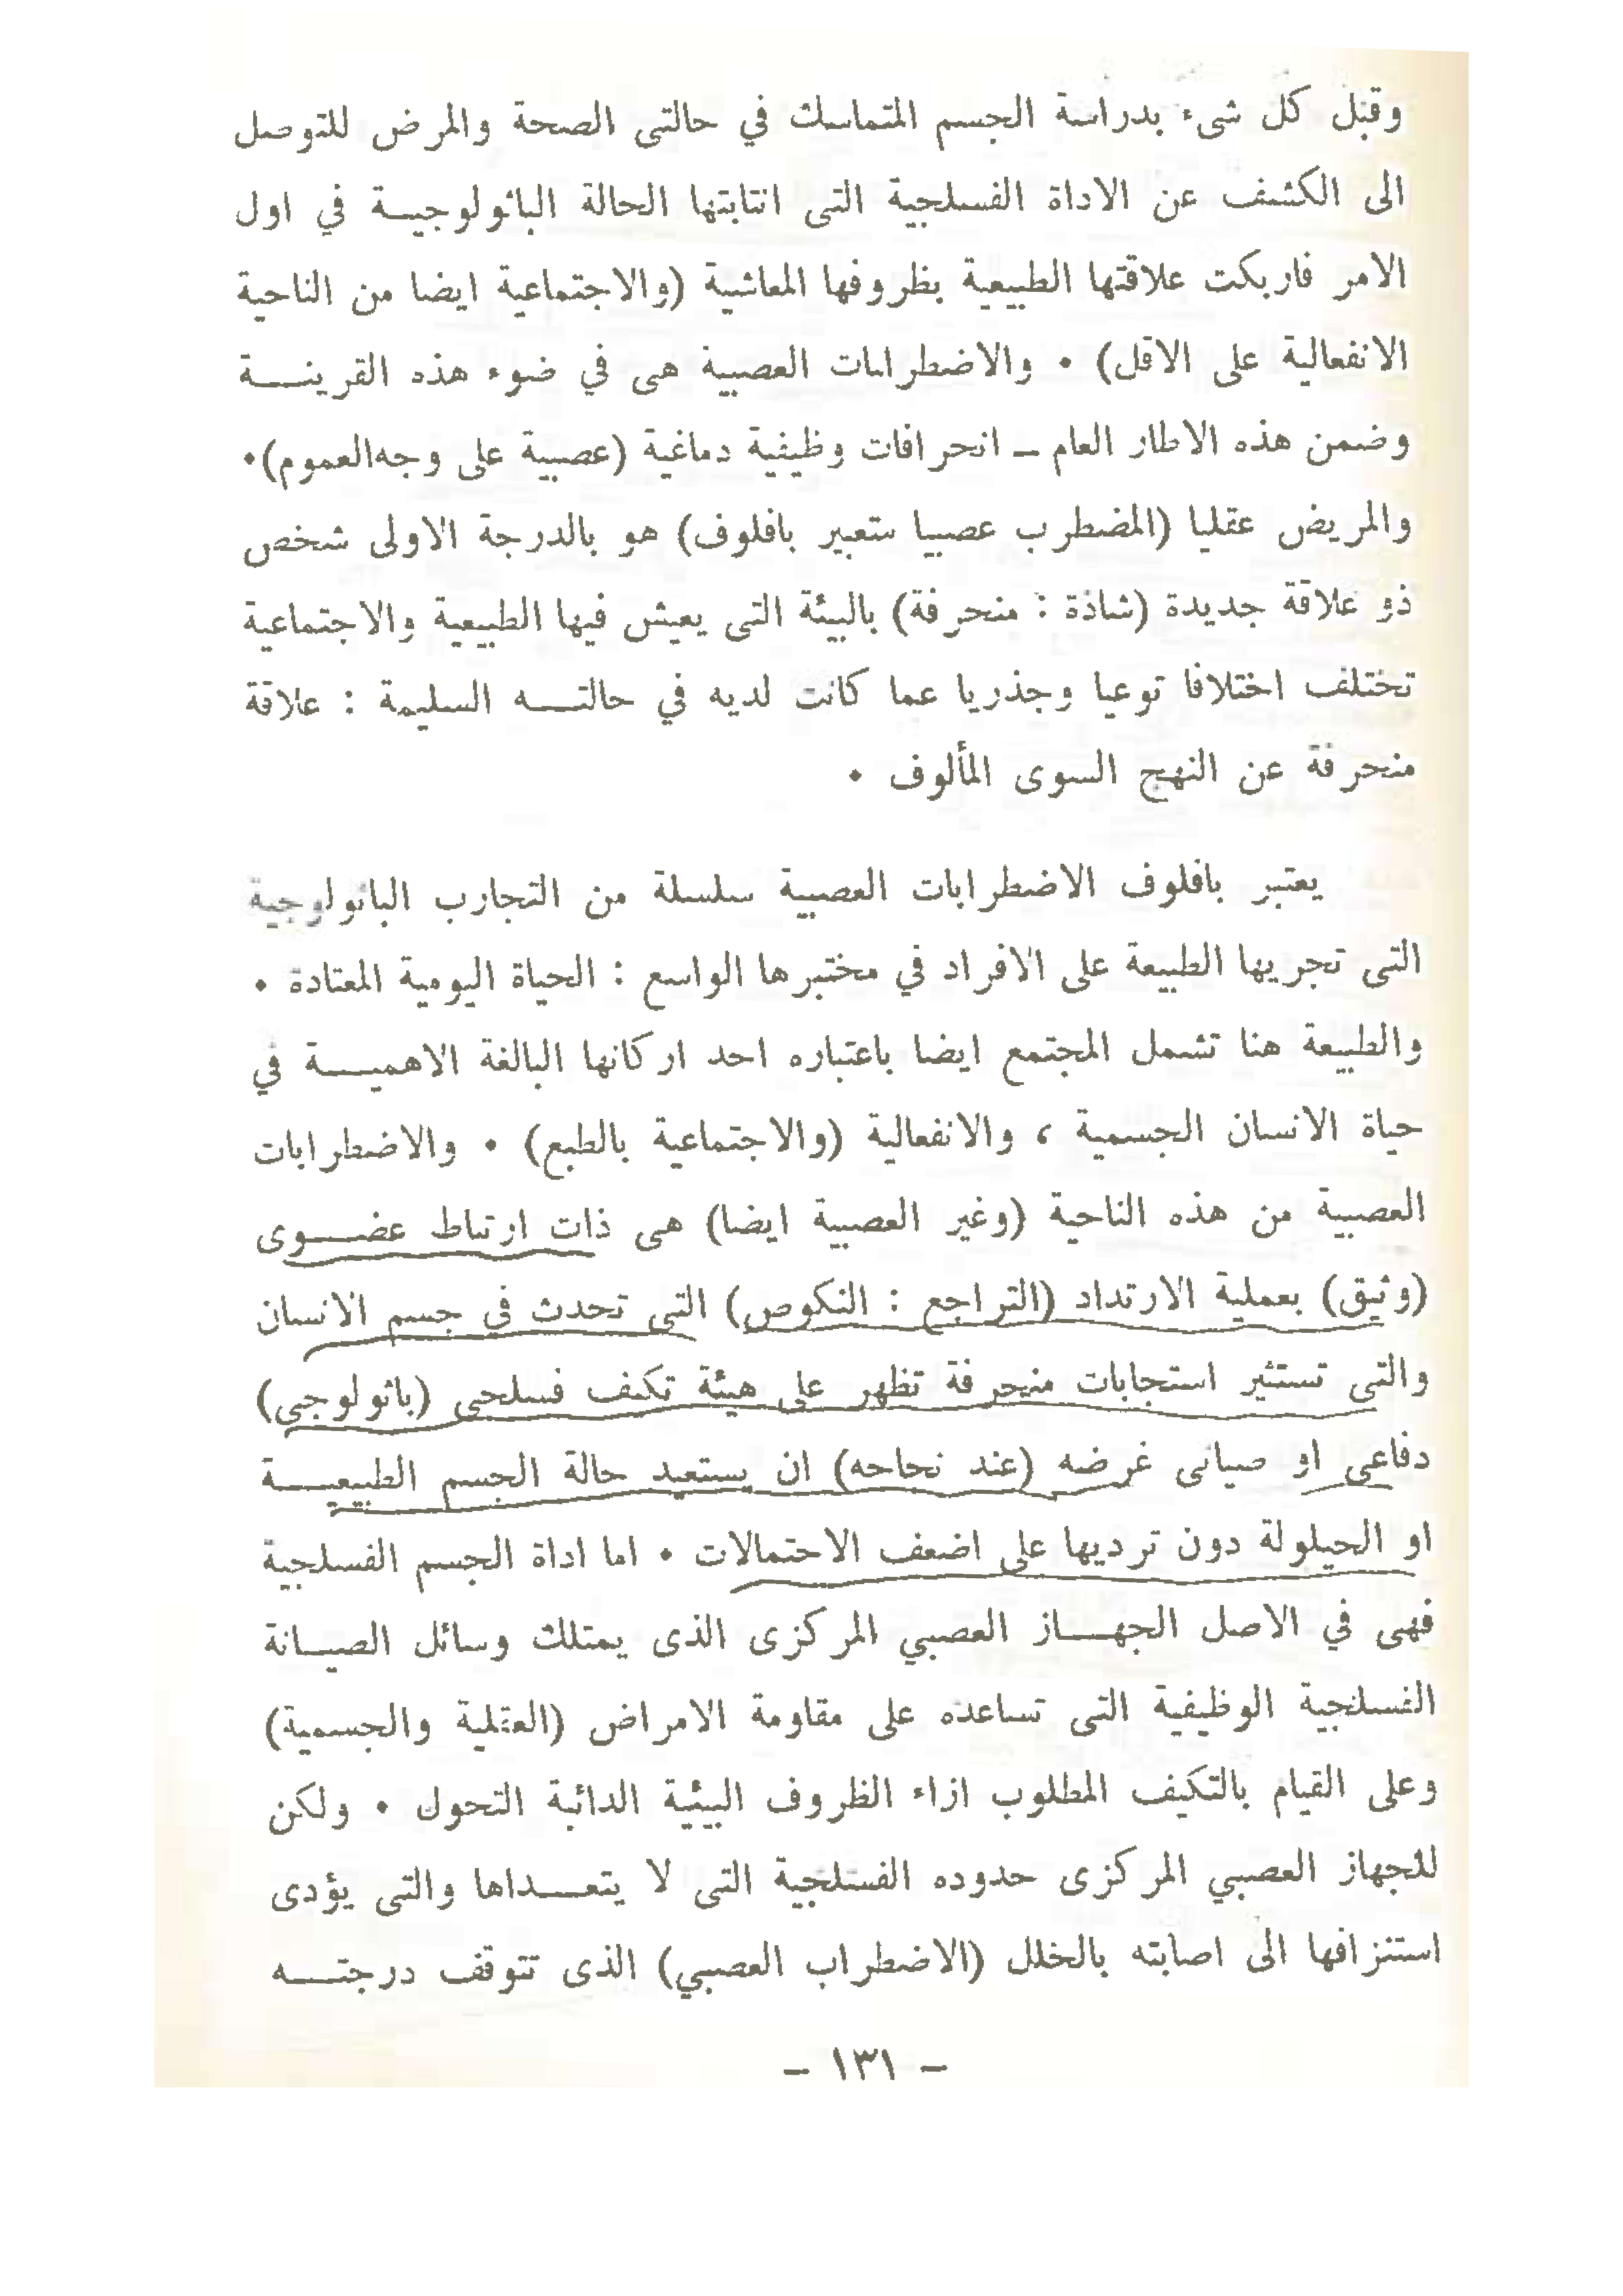 وقبل كل شىء بدراسة الجسم المتماسك في حالتى الصحة والمرض للتوصل
الى الكشف عن الاداة الفسلجية التى انتابتها الحالة الباثولوجيــة في اول
الامر فاربكت علاقتها الطبيعية بظروفها المعاشية (والاجتماعية ايضا من الناحية
الانفعالية على الاقل) ٠ والاضطرابات العصبية هى في ضوء هذه القرينــة
وضمن هذه الاطار العام ــ انحرافات وظيفية دماغية (عصبية على وجهالعموم)٠
والمريض عقليا (المضطرب عصبيا بتعبير بافلوف) هو بالدرجة الاولى شخص
ذو علاقة جديدة (شاذة : منحرفة) بالبيئة التى يعيش فيها الطبيعية والاجتماعية
تختلف اختلافا نوعيا وجذريا عما كانت لديه في حالتــه السليمة : علاقة
منحرفة عن النهج السوى المألوف ٠
يعتبر بافلوف الاضطرابات العصبية سلسلة من التجارب الباثولوجية
التى تجريها الطبيعة على الافراد في مختبرها الواسع : الحياة اليومية المعتادة ٠
والطبيعة هنا تشمل المجتمع ايضا باعتباره احد اركانها البالغة الاهميــة في
حياة الانسان الجسمية ، والانفعالية (والاجتماعية بالطبع) ٠ والاضطرابات
العصبية من هذه الناحية (وغير العصبية ايضا) هى ذات ارتباط عضــوى
(وثيق) بعملية الارتداد (التراجع : النكوص) التى تحدث في جسم الانسان
والتى تستثير استجابات منحرفة تظهر على هيئة تكيف فسلجى (باثولوجى)
دفاعى او صيانى غرضه (عند نجاحه) ان يستعيد حالة الجسم الطبيعيــة
او الحيلولة دون ترديها على اضعف الاحتمالات ٠ اما اداة الجسم الفسلجية
فهى في الاصل الجهــاز العصبي المركزى الذى يمتلك وسائل الصيــانة
الفسلجية الوظيفية التى تساعده على مقاومة الامراض (العقلية والجسمية)
وعلى القيام بالتكيف المطلوب ازاء الظروف البيئية الدائبة التحول ٠ ولكن
للجهاز العصبي المركزى حدوده الفسلجية التى لا يتعــداها والتى يؤدى
استنزافها الى اصابته بالخلل (الاضطراب العصبي) الذى تتوقف درجتــه
– ١٣١ –